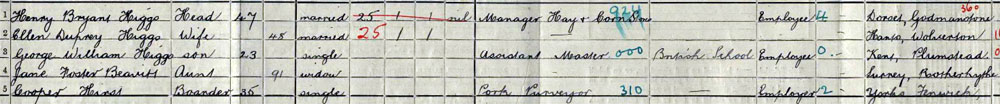 1 Henry Bryant Higgs Head 47 married 25 1 1 nil Manager Hay & Corn 924 Employee 4 Dorset, Godmanstone 360
2 Ellen Duprey Higgs Wife 48 married 25 1 1 — Hants, Wolverton
3 George William Higgs son 23 single Assistant Master 000 British School Employee 0 Kent, Plumstead
4 Jane Foster Beavitt Aunt 91 widow Surrey, Rotherhythe
5 Cooper Hirst Boarder 35 single Pork Purveyor 310 — Employer 2 Yorks Fenwick